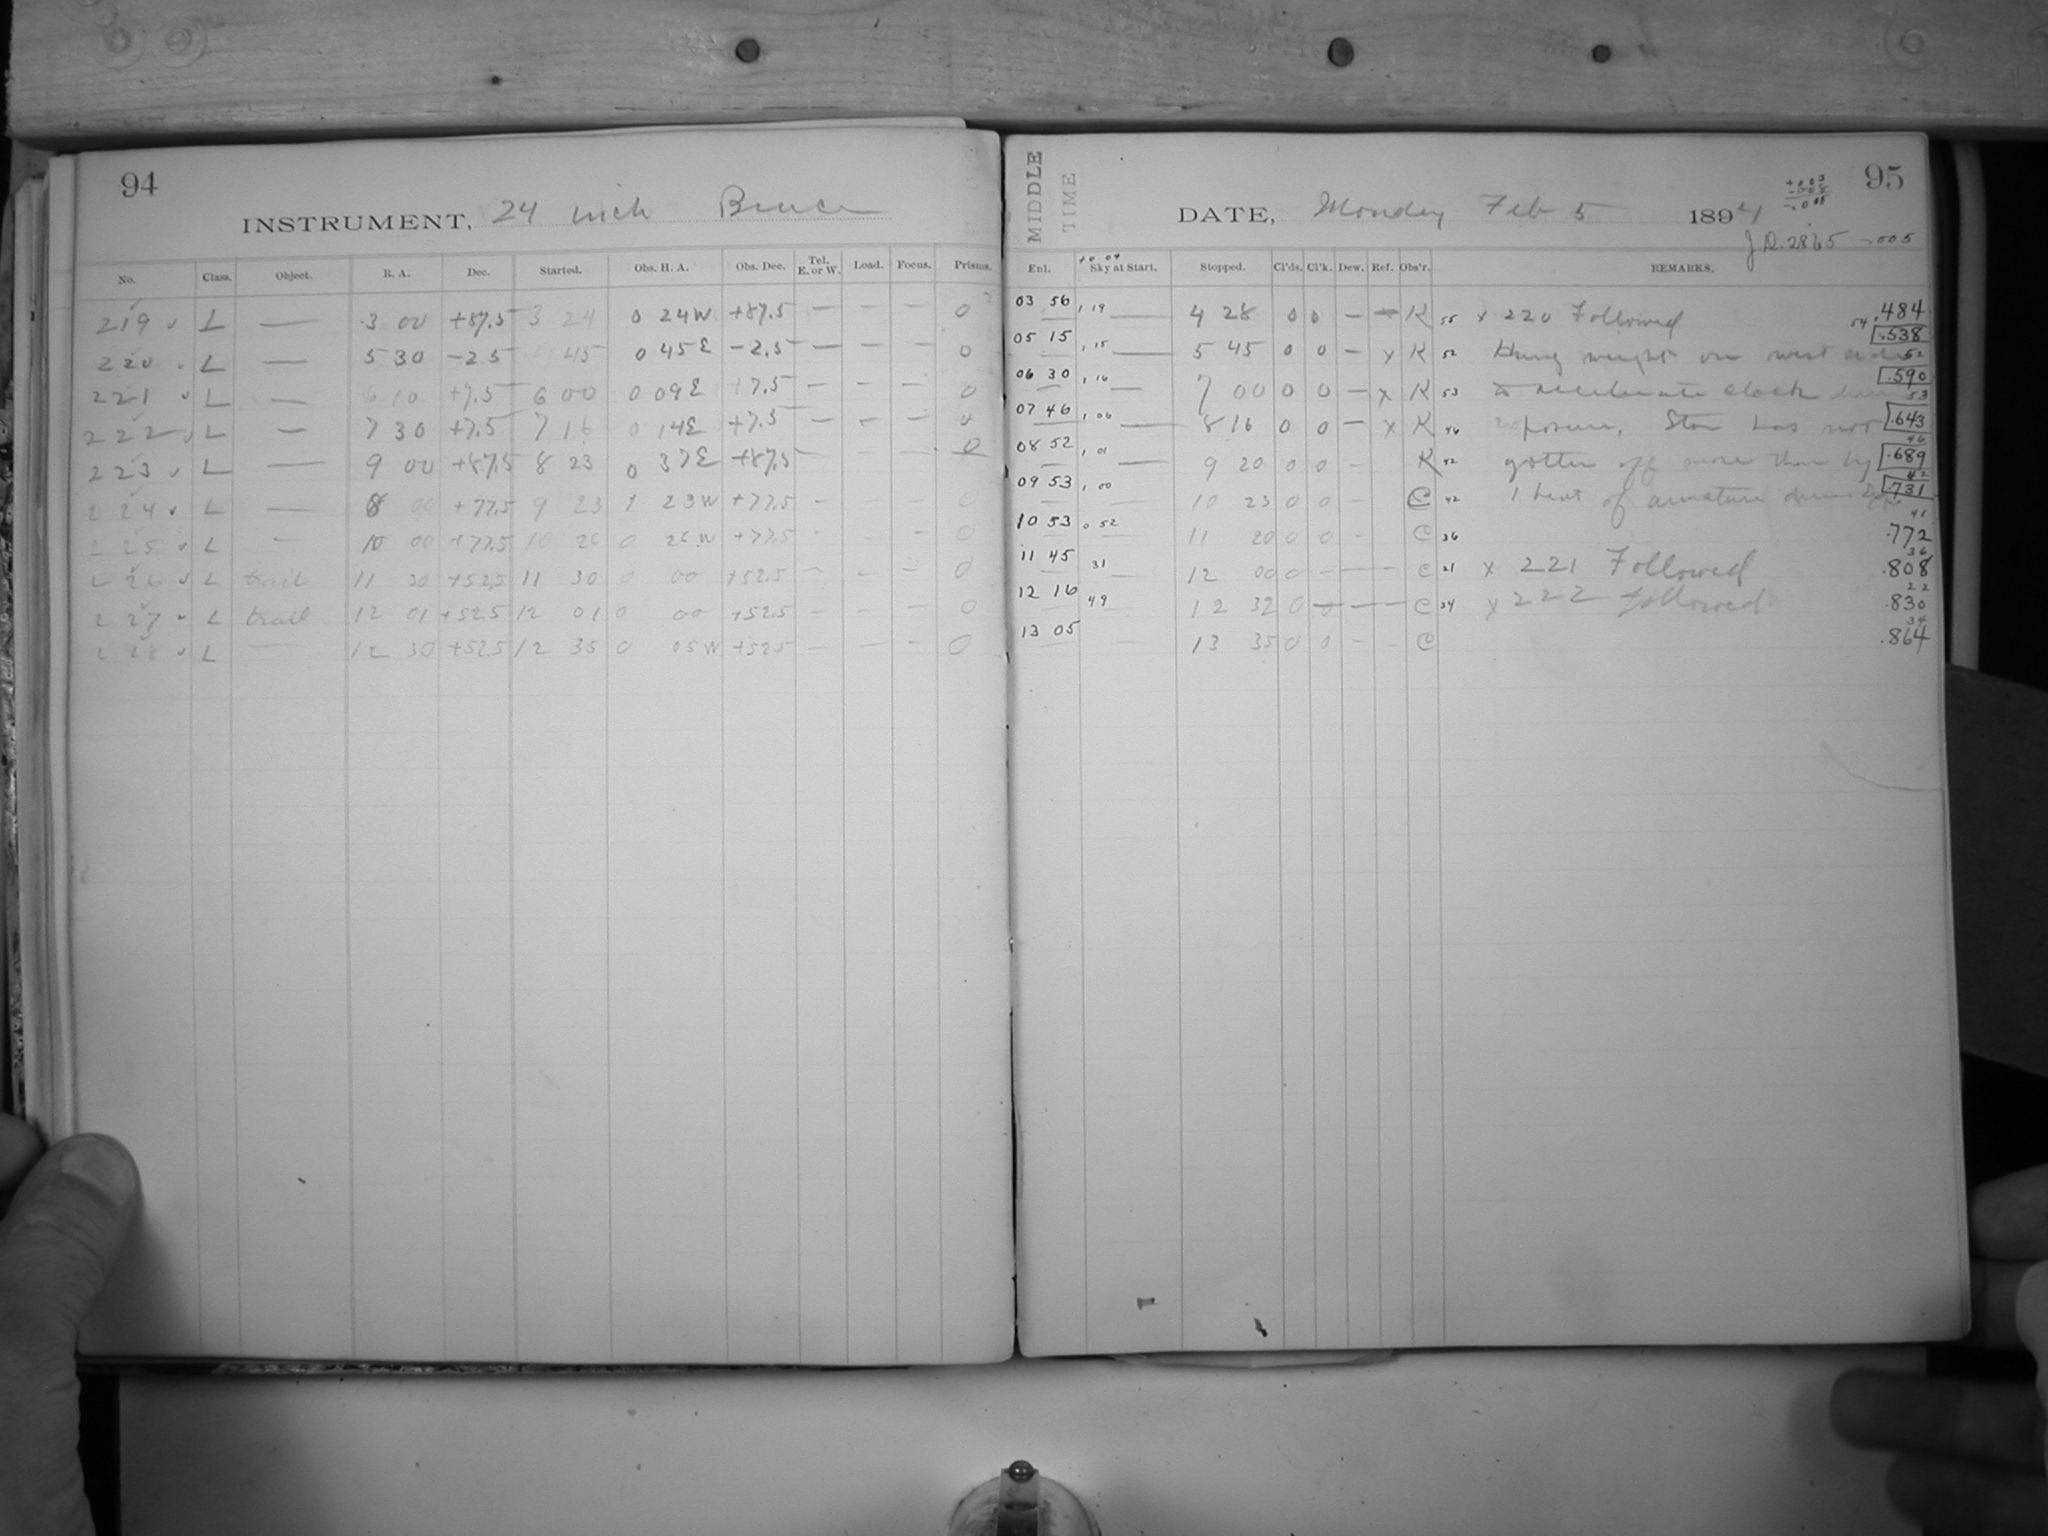 94
INSTRUMENT, 24 inch Bruce
No. Class. Object. R. A. Dec. Started. Obs. H. A. Obs. Dec. Tel. E. or W. Load. Focus. Prisms.
219 ✓ L — 3 00 +87.5 3 24 0 24W +87.5 — — — 0
220 ✓ L — 5 30 -2.5 45 0 45E -2.5 — — — 0
221 ✓ L — 6 10 +7.5 6 00 0 09E +7.5 — — — 0
222 ✓ L — 7 30 +7.5 7 16 0 14E +7.5 — — — 0
223 ✓ L — 9 00 +87.5 8 23 0 37E +87.5 — — — 0
224 ✓ L — 8 00 +77.5 9 23 1 23W +77.5 — — — 0
225 ✓ L — 10 00 +77.5 10 26 0 26W +77.5 — — — 0
226 ✓ L trail 11 30 +52.5 11 30 0 00 +52.5 — — — 0
227 ✓ L trail 12 01 +52.5 12 01 0 00 +52.5 — — — 0
228 ✓ L — 12 30 +52.5 12 35 0 05W +52.5 — — — 0
MIDDLE TIME
95
DATE, Monday Feb 5 1894
J.D. 2865 -.005
Enl. Sky at Start. Stopped. Cl'ds. Cl'k. Dew. Ref. Obs'r. REMARKS.
03 56 1 19 — 4 28 0 0 — — K 55 x 220 Followed 54 .484
05 15 1 15 — 5 45 0 0 — x K 52 Hung weight on west side .538
06 30 1 16 — 7 00 0 0 — x K 53 to accelerate clock 52 .590
07 46 1 06 — 8 16 0 0 — x K 46 Star has not 53 .643
08 52 1 01 — 9 20 0 0 — K 42 gotten off more than by 46 .689
09 53 1 00 — 10 23 0 0 — C 42 1 beat of armature 42 .731
10 53 0 52 11 20 0 0 — C 36 41 .772
11 45 31 — 12 00 0 — — — C 21 x 221 Followed 36 .808
12 16 49 12 32 0 — — — C 34 x 222 followed. 22 .830
13 05 — 13 35 0 0 — — C 34 .864